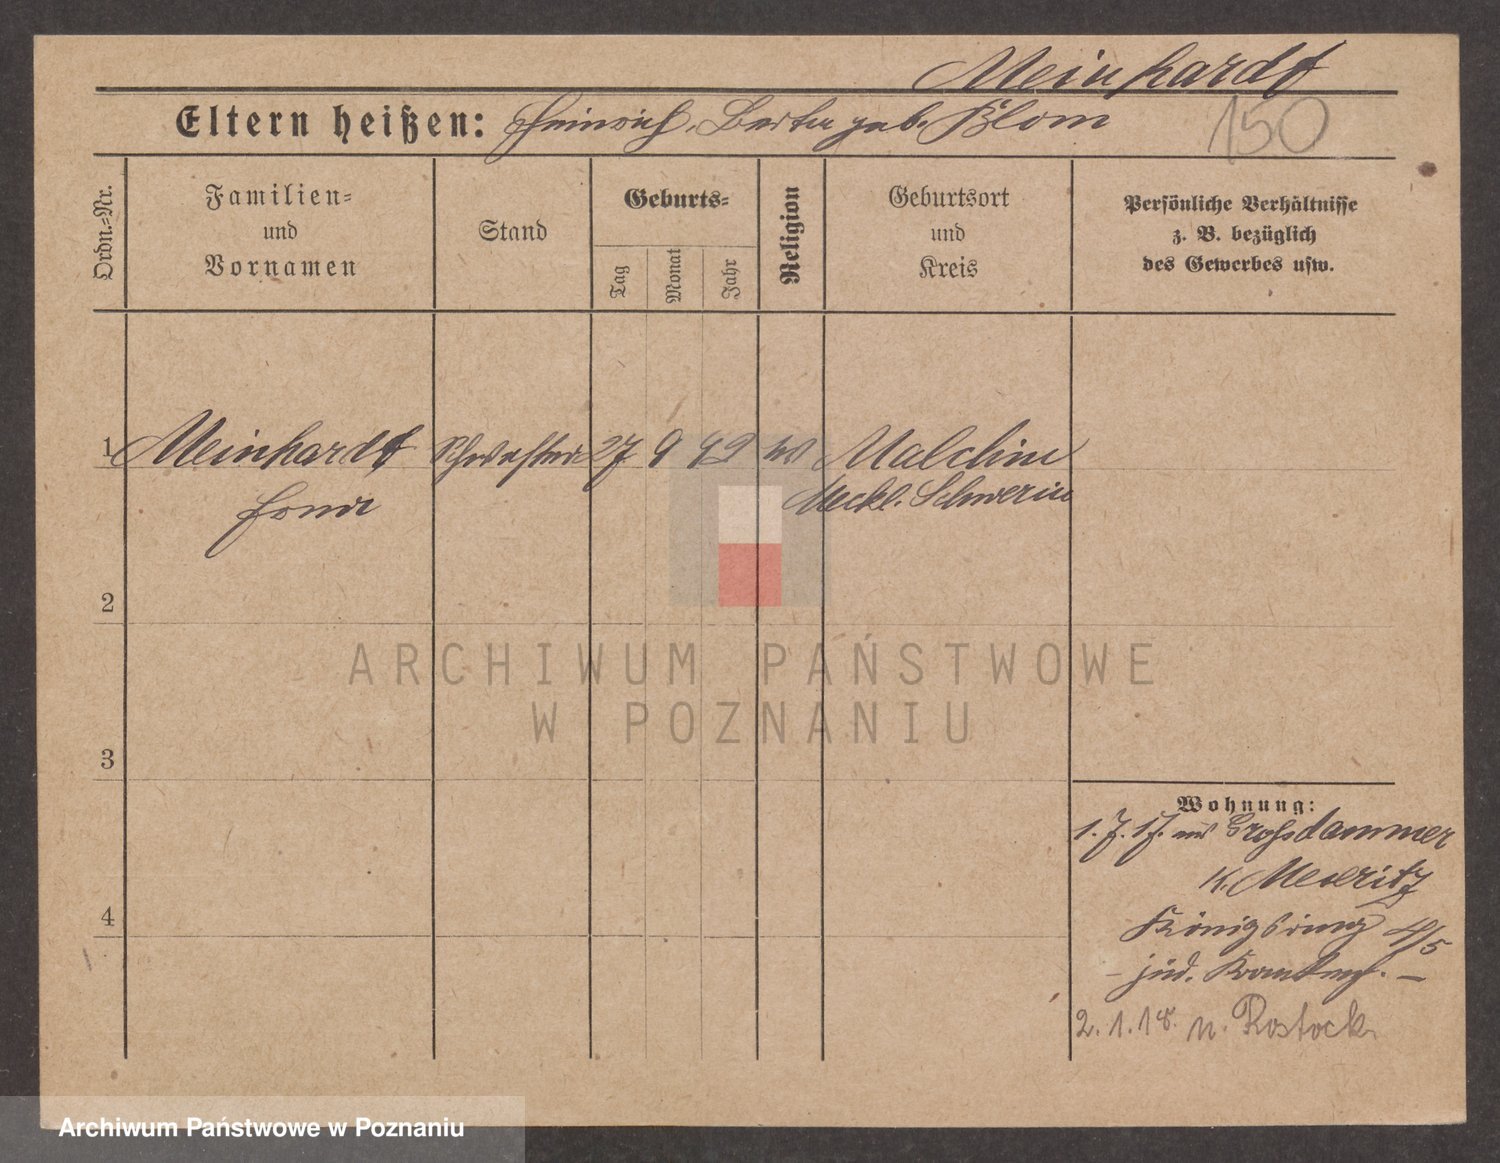 Meinhardt
Eltern heißen: Heinrich, Berta geb. Blom
150
Ordn.=Nr.
Familien=
und
Vornamen
Stand
Geburts=
Tag
Monat
Jahr
Religion
Geburtsort
und
Kreis
Persönliche Verhältnisse
z. B. bezüglich
des Gewerbes usw.
1 Meinhardt Schwester 27 9 92 Malchin
Erna Meckl. Schwerin
2
3
4
Wohnung:
1.7.17. aus Großdammer
K. Meseritz
Königsring 4/5
- jüd. Krankenh. -
2.1.18. n. Rostock
ARCHIWUM PAŃSTWOWE
W POZNANIU
Archiwum Państwowe w Poznaniu